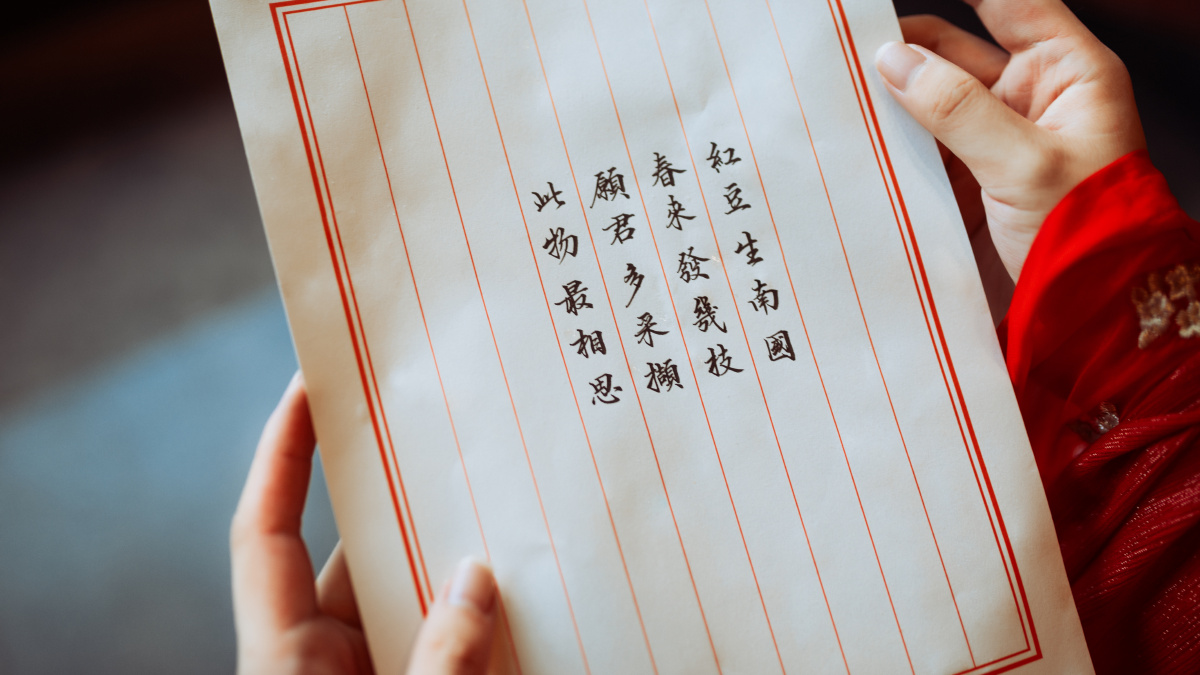 紅豆生南國
春來發幾技
願君多采擷
此物最相思